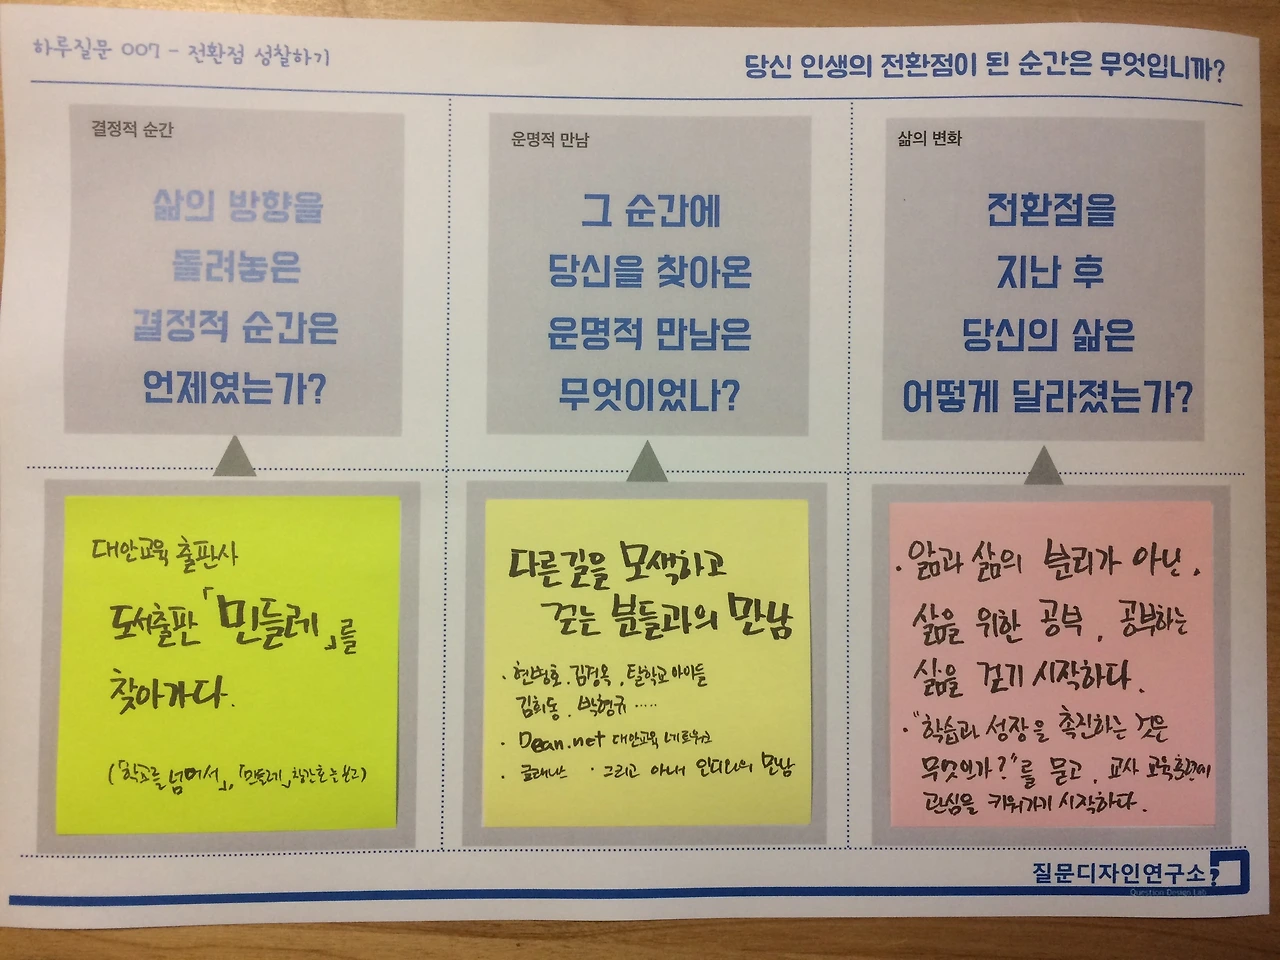 하루질문 007 - 전환점 성찰하기
당신 인생의 전환점이 된 순간은 무엇입니까?
결정적 순간
삶의 방향을
돌려놓은
결정적 순간은
언제였는가?
운명적 만남
그 순간에
당신을 찾아온
운명적 만남은
무엇이었나?
삶의 변화
전환점을
지난 후
당신의 삶은
어떻게 달라졌는가?
대안교육 출판사
도서출판 「민들레」를
찾아가다.
(「학교를 넘어서」, 「민들레」 창간호를 보고)
다른길을 모색하고
걷는 분들과의 만남
· 현병호. 김경옥, 탈학교 아이들
김희동. 박형규 .....
· Dean.net 대안교육 네트워크
· 글래난스 · 그리고 아내 인디언의 만남
· 앎과 삶의 분리가 아닌,
삶을 위한 공부, 공부하는
삶을 걷기 시작하다.
· "학습과 성장을 촉진하는 것은
무엇인가?"를 묻고, 교사 교육훈련에
관심을 키워가기 시작하다.
질문디자인연구소?
Question Design Lab